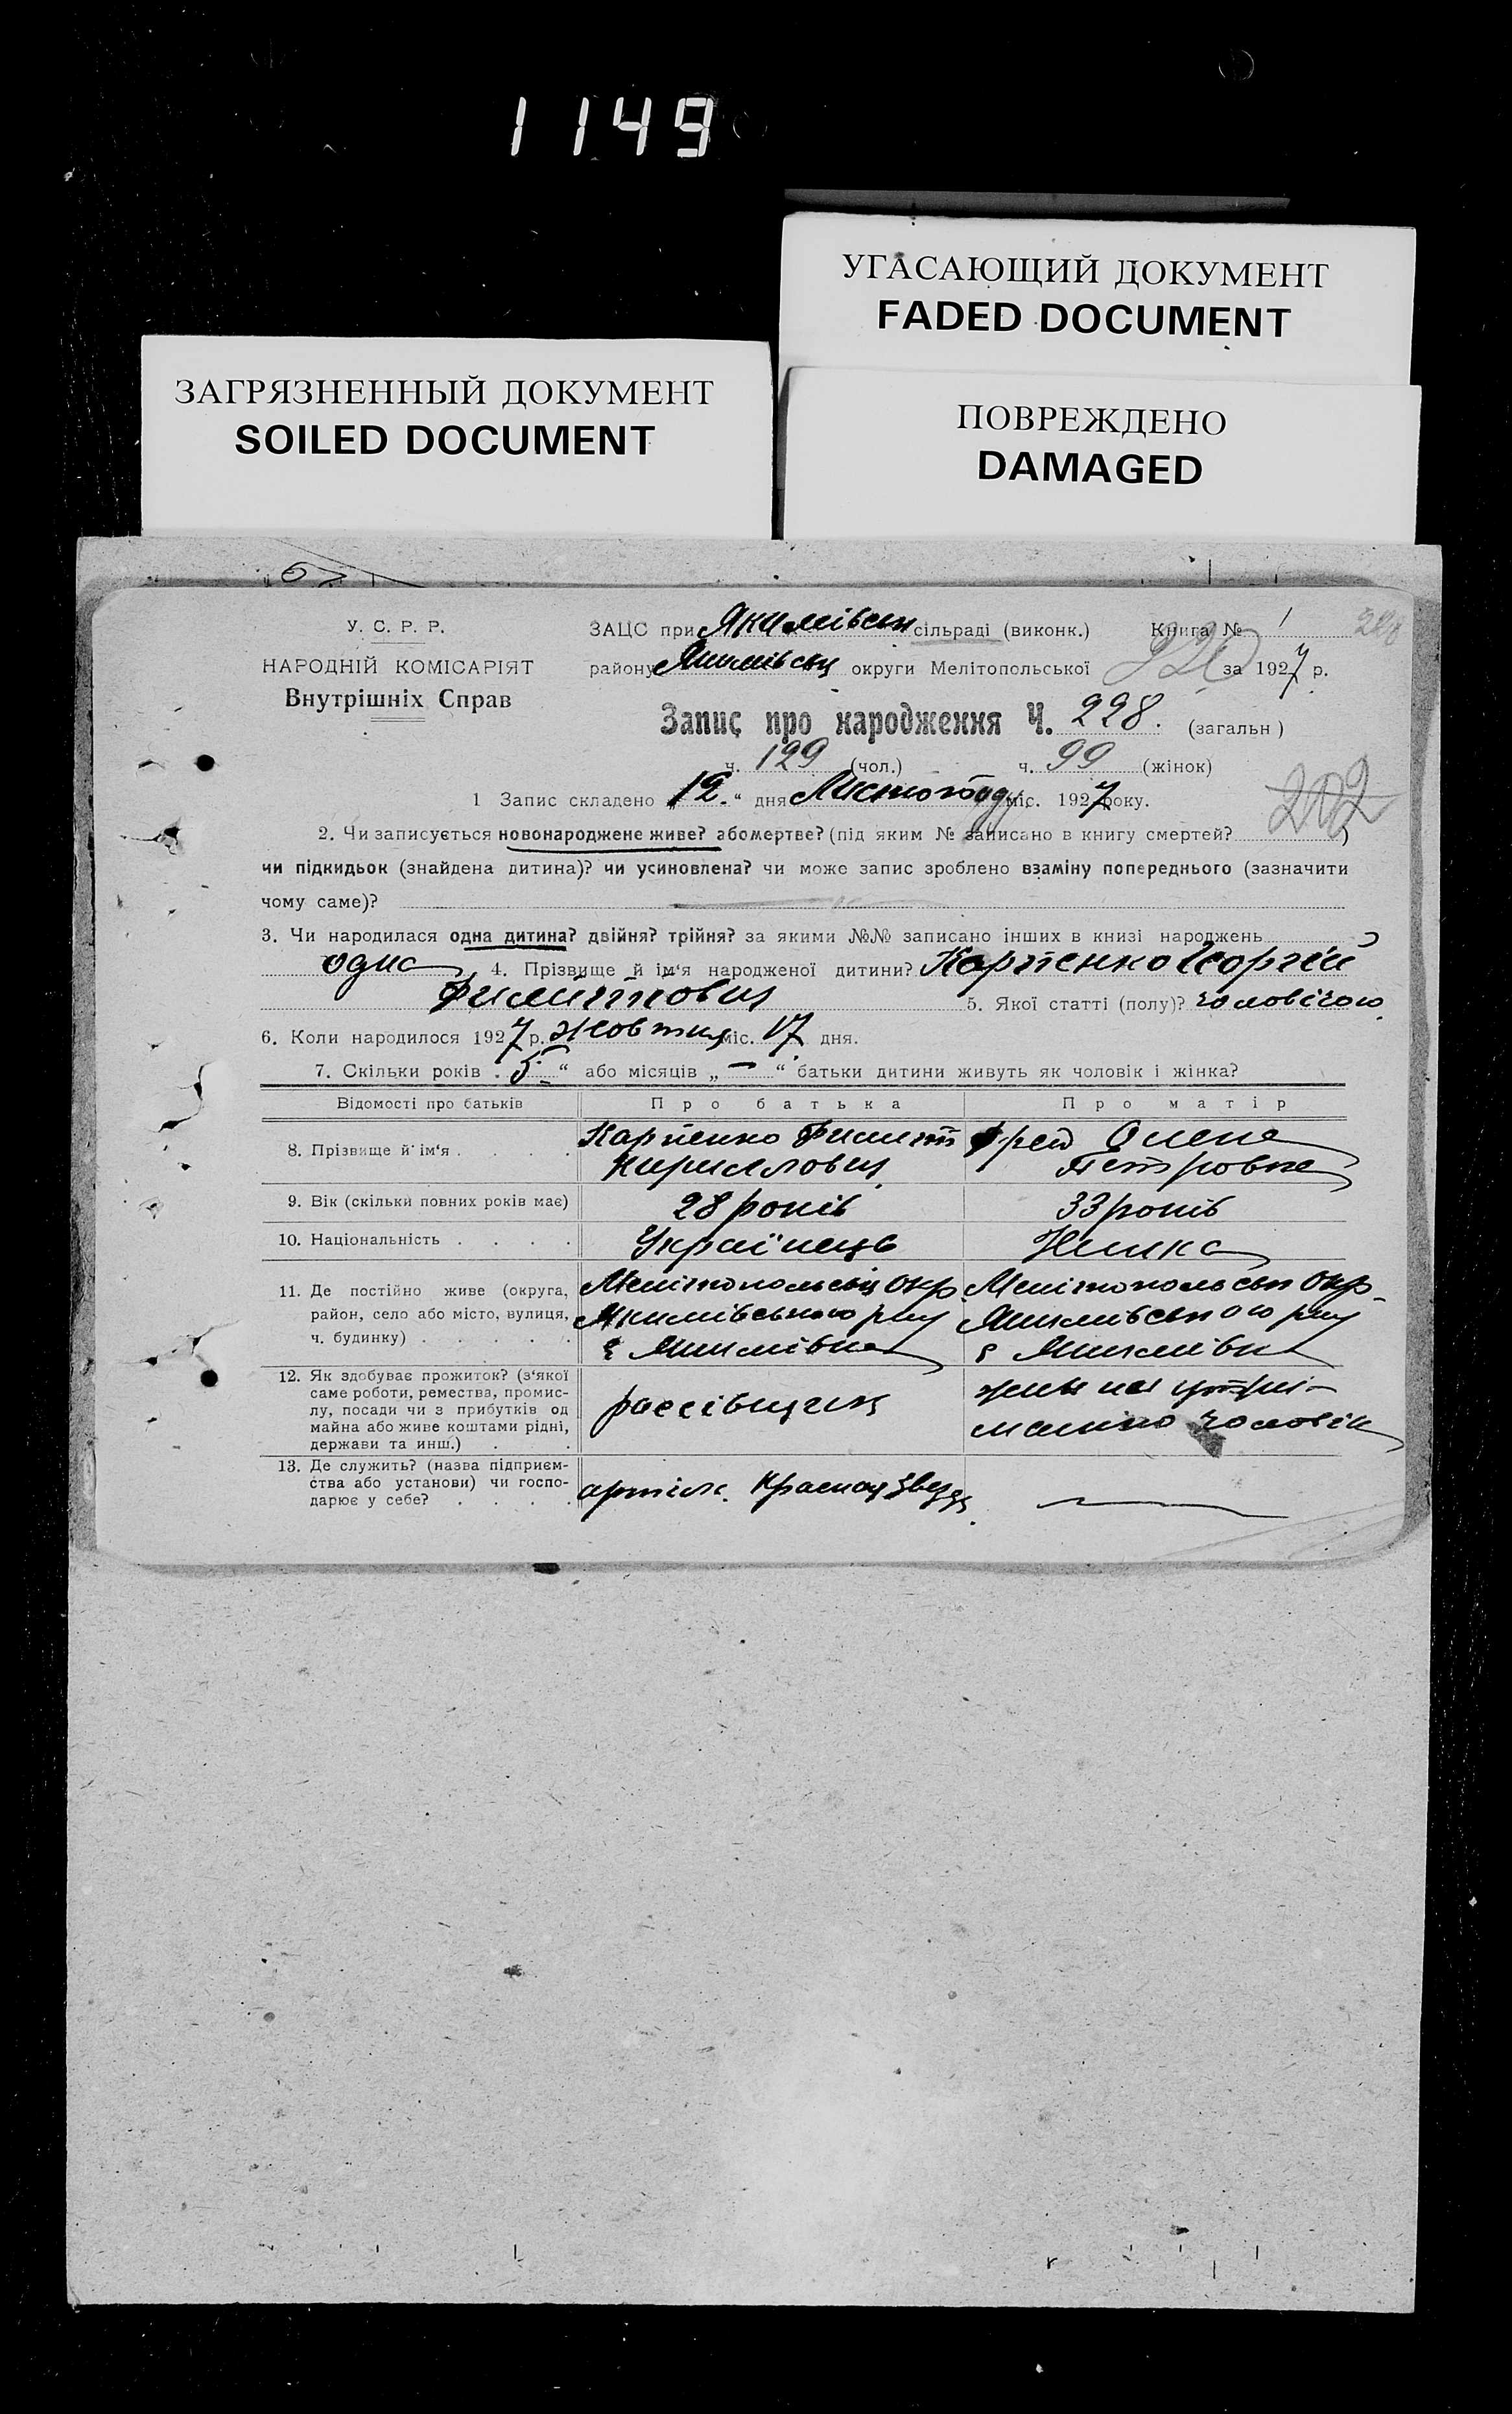 1149
УГАСАЮЩИЙ ДОКУМЕНТ
FADED DOCUMENT
ЗАГРЯЗНЕННЫЙ ДОКУМЕНТ
SOILED DOCUMENT
ПОВРЕЖДЕНО
DAMAGED
У. С. Р. Р.
НАРОДНІЙ КОМІСАРІЯТ
Внутрішніх Справ
ЗАЦС при Якимівськ сільраді (виконк.) Книга № 1
району Якимівськ округи Мелітопольської 220 за 1927 р.
Запис про народження Ч. 228. (загальн)
ч. 129 (чол.) ч. 99 (жінок)
1 Запис складено „12“ дня Листопаду міс. 1927 року.
202
2. Чи записується новонароджене живе? або мертве? (під яким № записано в книгу смертей? )
чи підкидьок (знайдена дитина)? чи усиновлена? чи може запис зроблено взаміну попереднього (зазначити
чому саме)?
3. Чи народилася одна дитина? двійня? трійня? за якими №№ записано інших в книзі народжень
одна 4. Прізвище й ім'я народженої дитини? Карпенко Георгій
Филиппович 5. Якої статті (полу)? чоловічою
6. Коли народилося 1927 р. Жовтня міс. 17 дня.
7. Скільки років „5“ або місяців „—“ батьки дитини живуть як чоловік і жінка?
Відомості про батьків Про батька Про матір
8. Прізвище й ім'я . . . . Карпенко Филипп Кириллович Олена Петровна
9. Вік (скільки повних років має) 28 років 33 років
10. Національність . . . . Українець Німка
11. Де постійно живе (округа, район, село або місто, вулиця, ч. будинку) . . . . . Мелітопольськ Окр Якимівського р-ну с Якимівка Мелітопольськ Окр. Якимівського р-ну с Якимівка
12. Як здобуває прожиток? (з'якої саме роботи, ремества, промислу, посади чи з прибутків од майна або живе коштами рідні, держави та инш.) . . на утриманню чоловіка
13. Де служить? (назва підприємства або установи) чи господарює у себе? . . . . артіль Красная Звезда